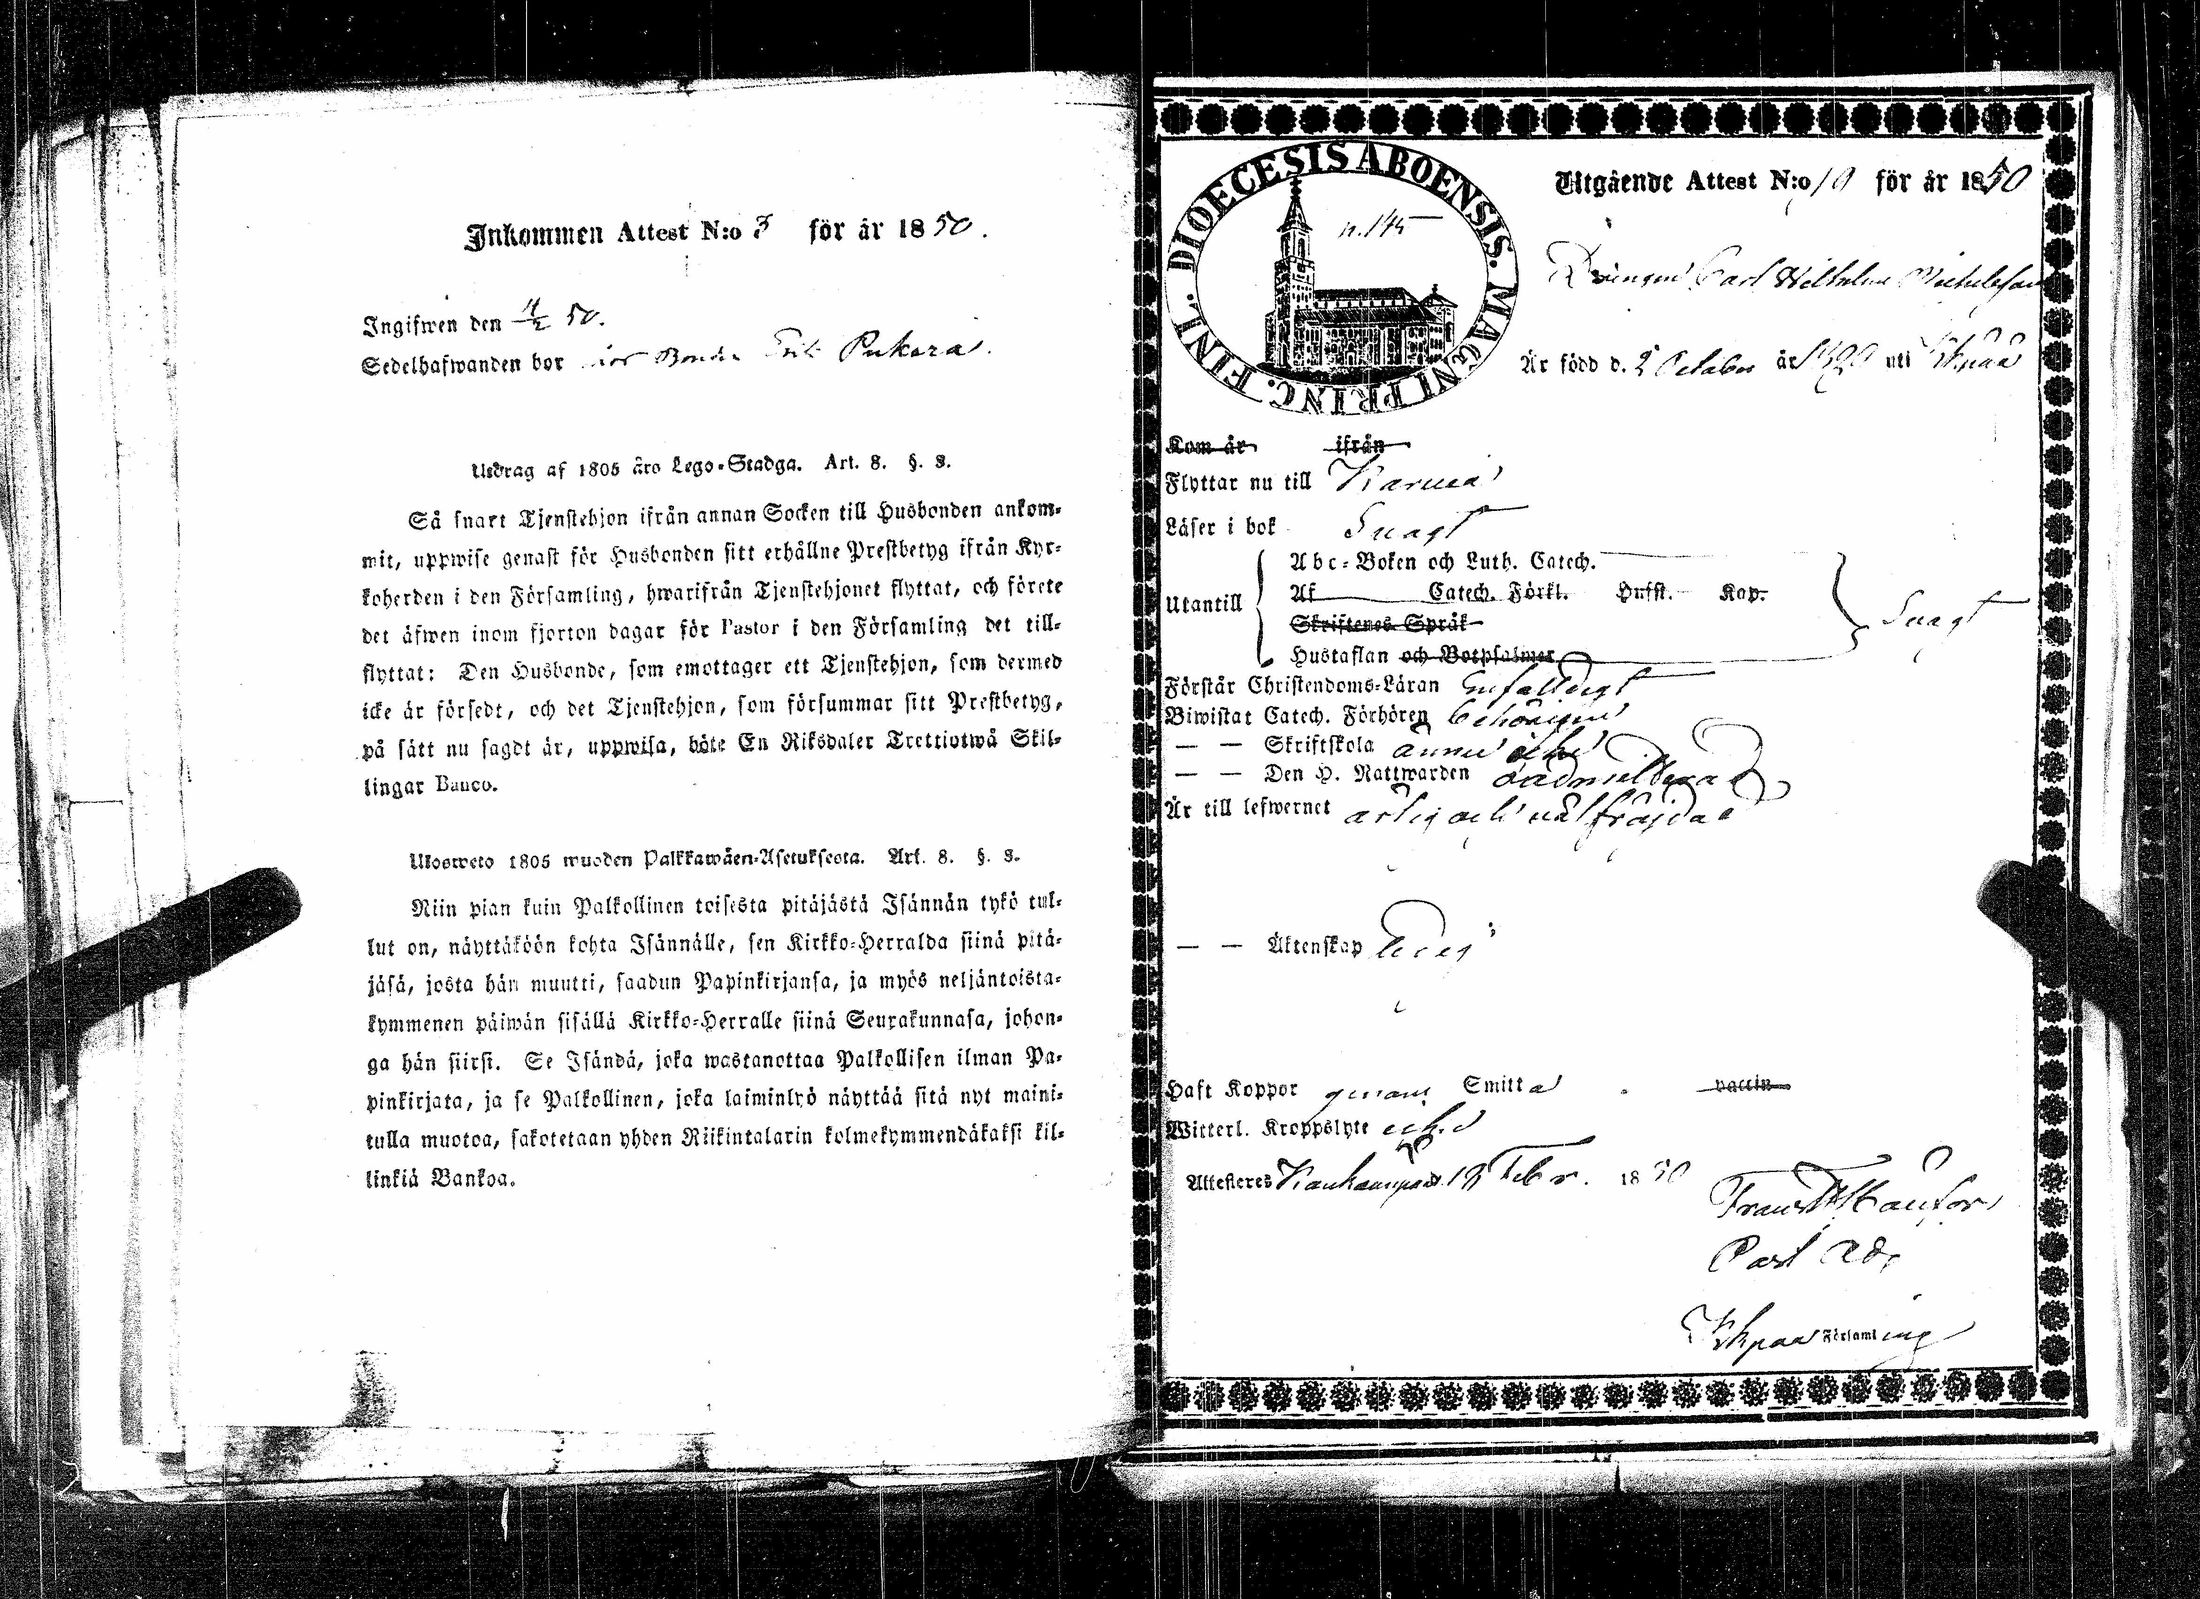 Inkommen Attest N:o 3 för år 1850.
Ingifwen den 4/2 50.
Sedelhafwanden bor hos Bonden Erik Pukera.
Utdrag af 1805 års Lego-Stadga. Art. 8. §. 8.
Så snart Tjenstehjon ifrån annan Socken till Husbonden ankom-
mit, uppwise genast för Husbonden sitt erhållne Prestbetyg ifrån Kyr-
koherden i den Församling, hwarifrån Tjenstehjonet flyttat, och förete
det äfwen inom fjorton dagar för Pastor i den Församling det till-
flyttat: Den Husbonde, som emottager ett Tjenstehjon, som dermed
icke är försedt, och det Tjenstehjon, som försummar sitt Prestbetyg,
på sätt nu sagdt är, uppwisa, böte En Riksdaler Trettiotwå Skil-
lingar Banco.
Ulosweto 1805 wuoden Palkkawäen-Asetuksesta. Art. 8. §. 8.
Niin pian kuin Palkollinen toisesta pitäjästä Isännän tykö tul-
lut on, näyttäköön kohta Isännälle, sen Kirkko-Herralda siinä pitä-
jäsä, josta hän muutti, saadun Papinkirjansa, ja myös neljäntoista-
kymmenen päiwän sisällä Kirkko-Herralle siinä Seurakunnasa, johon-
ga hän siirsi. Se Isändä, joka wastanottaa Palkollisen ilman Pa-
pinkirjata, ja se Palkollinen, joka laiminlyö näyttää sitä nyt maini-
tulla muotoa, sakotetaan yhden Riikintalarin kolmekymmendäkaksi kil-
linkiä Bankoa.
DIOECESIS ABOENSIS. MAGNI PRINC. FINL.
n. 145
Utgående Attest N:o 10 för år 1850
Drängen Carl Wilhelm Michelsson
Är född d. 2 October år uti
Kom år ifrån
Flyttar nu till Karuna
Läser i bok Svagt
Utantill
Abc-Boken och Luth. Catech.
Af Catech. Förkl. Husst. Kap.
Skriftenes Språk
Hustaflan och Botpsalmer
Svagt
Förstår Christendoms-Läran Enfalldigt
Biwistat Catech. Förhören behörigen
— — Skriftskola ännu icke
— — Den H. Nattwarden oadmitterad
Är till lefwernet ärlig och wälfräjdad
— — Äktenskap ledig
Haft Koppor genom Smitta vaccin
Witterl. Kroppslyte icke
Attesteres 12 Febr. 1850
Past Adj
Församling